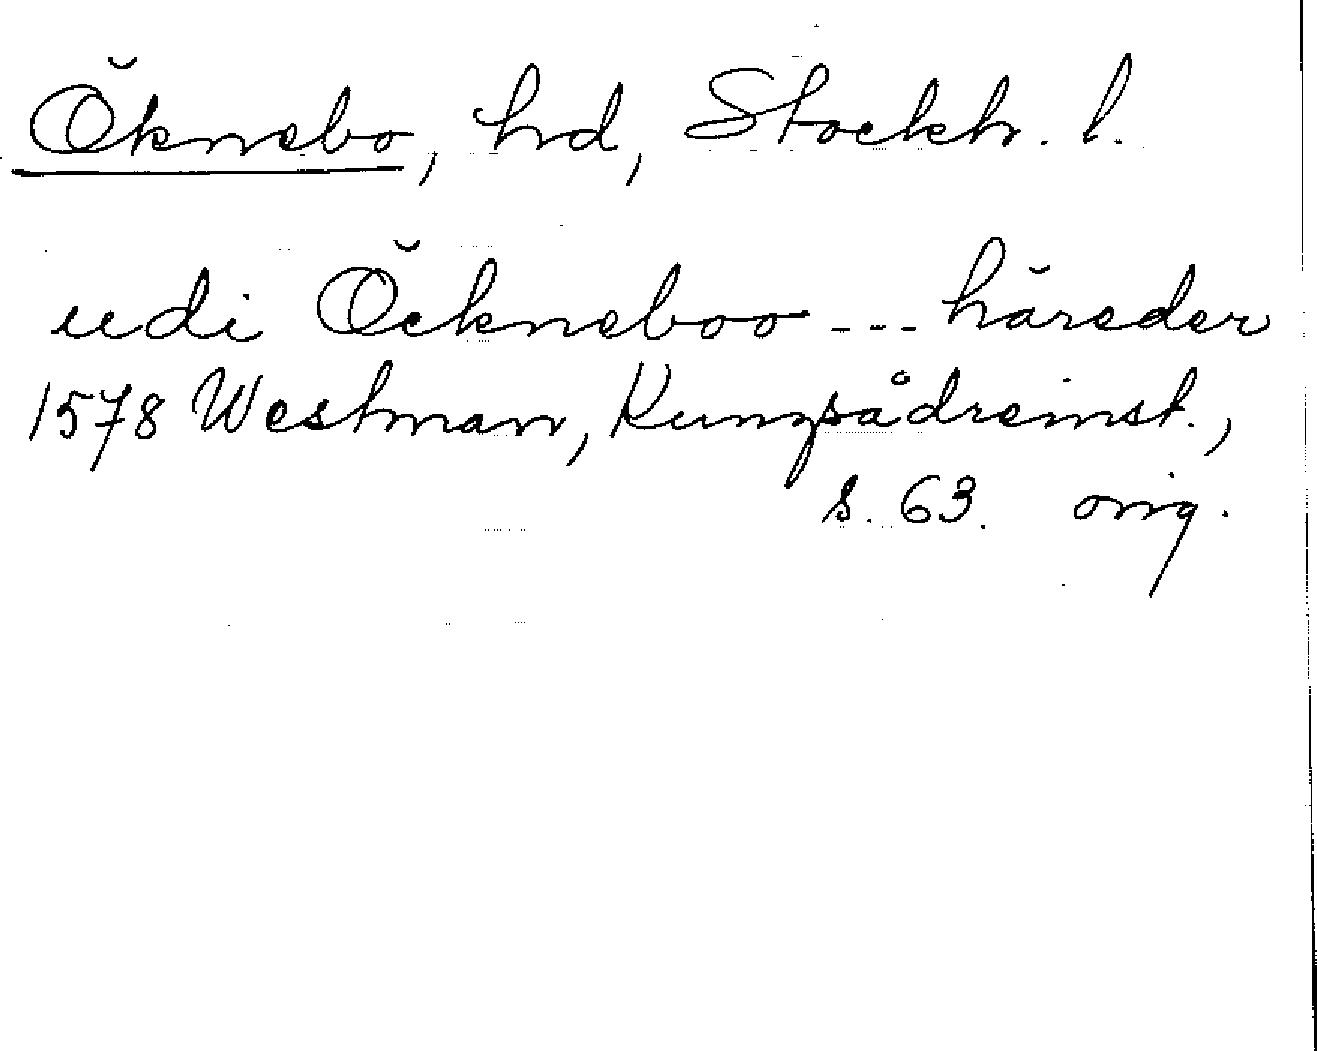 Öknebo, hd, Stockh. l.
udi Öckneboo --- häreder
1578 Westman, Kungsådreinst.,
s. 63. orig.